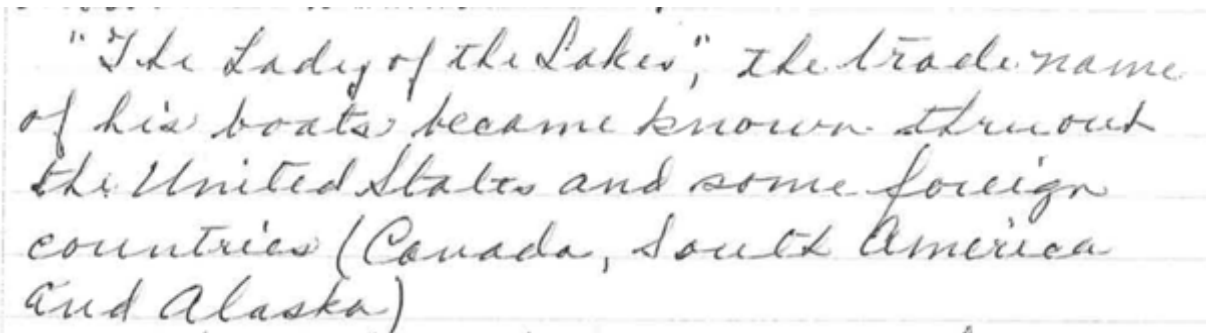 "The Lady of the Lakes", the trade name
of his boats became known thruout
the United States and some foreign
countries (Canada, South America
and Alaska)